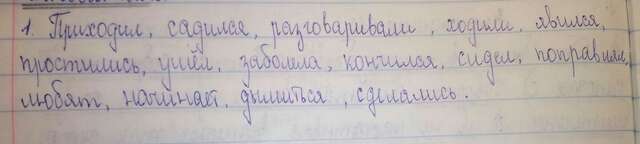 1. Приходил, садился, разговаривали, ходили, явился,
простились, ушёл, заболела, кончился, сидел, поправили,
любят, начинает, дымиться, сделались.